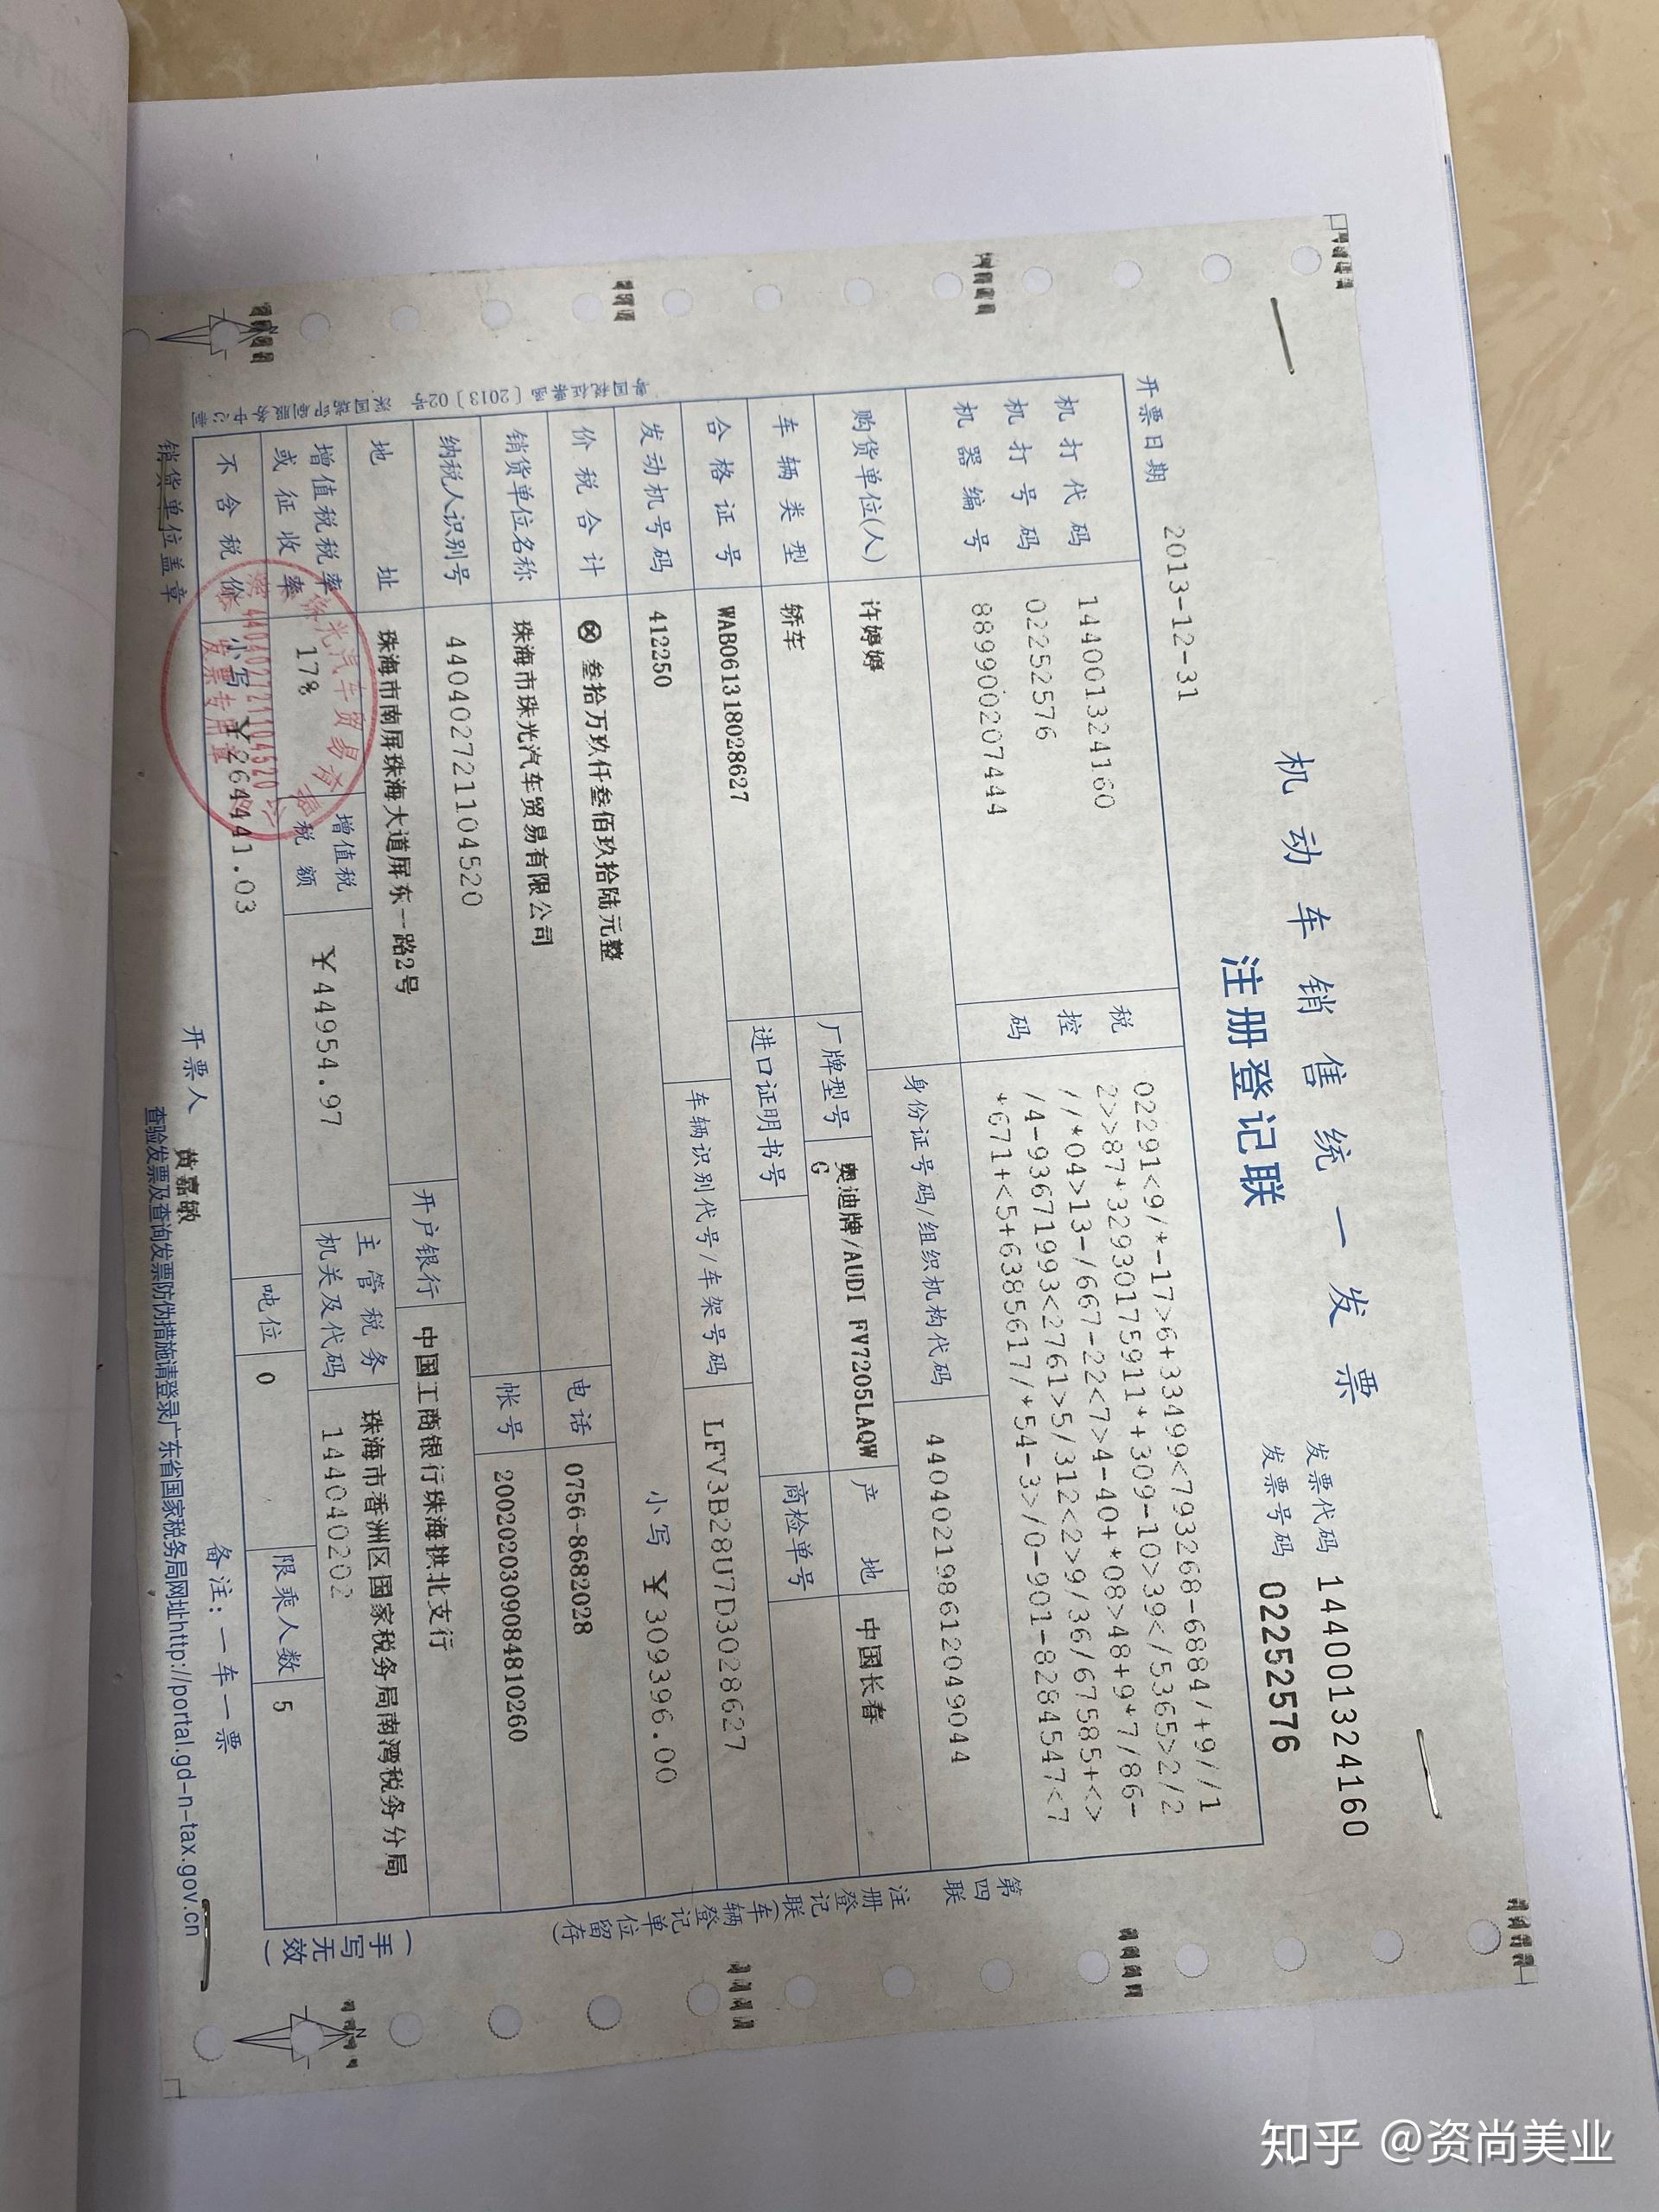 机动车销售统一发票
注册登记联
发票代码 144001324160
发票号码 02252576
开票日期 2013-12-31
机打代码 144001324160
机打号码 02252576
机器编号 889900207444
税控码
02291<9/*-17>6+33499<793268-6884/+9//1
2>>87+3293017591​1*+309-10>39</5365>2/2
//*04>13-/667-22<7>4-40+*08>48+9*7/86-
/4-93671993<2761>5/312<2>9/36/6785+<>
*671+<5+6385617/*54-3>/0-901-8284547<7
购货单位(人) 许婷婷 身份证号码/组织机构代码 440402198612049044
车辆类型 轿车 厂牌型号 奥迪牌/AUDI FV7205LAQW
G
产地 中国长春
合格证号 WAB061318028627 进口证明书号 商检单号
发动机号码 412250 车辆识别代号/车架号码 LFV3B28U7D3028627
价税合计 ⊗ 叁拾万玖仟叁佰玖拾陆元整 小写 ￥309396.00
销货单位名称 珠海市珠光汽车贸易有限公司 电话 0756-8682028
纳税人识别号 440402721104520 帐号 2002020309084810260
地址 珠海市南屏珠海大道屏东一路2号 开户银行 中国工商银行珠海拱北支行
增值税税率或征收率 17% 增值税税额 ￥44954.97 主管税务机关及代码 珠海市香洲区国家税务局南湾税务分局
144040202
不含税价 小写 ￥264441.03 吨位 0 限乘人数 5
销货单位盖章 开票人 黄嘉敏 备注：一车一票
查验发票及查询发票防伪措施请登录广东省国家税务局网址http://portal.gd-n-tax.gov.cn
第四联 注册登记联(车辆登记单位留存)
(手写无效)
440402721104520
发票专用章
知乎 @资尚美业